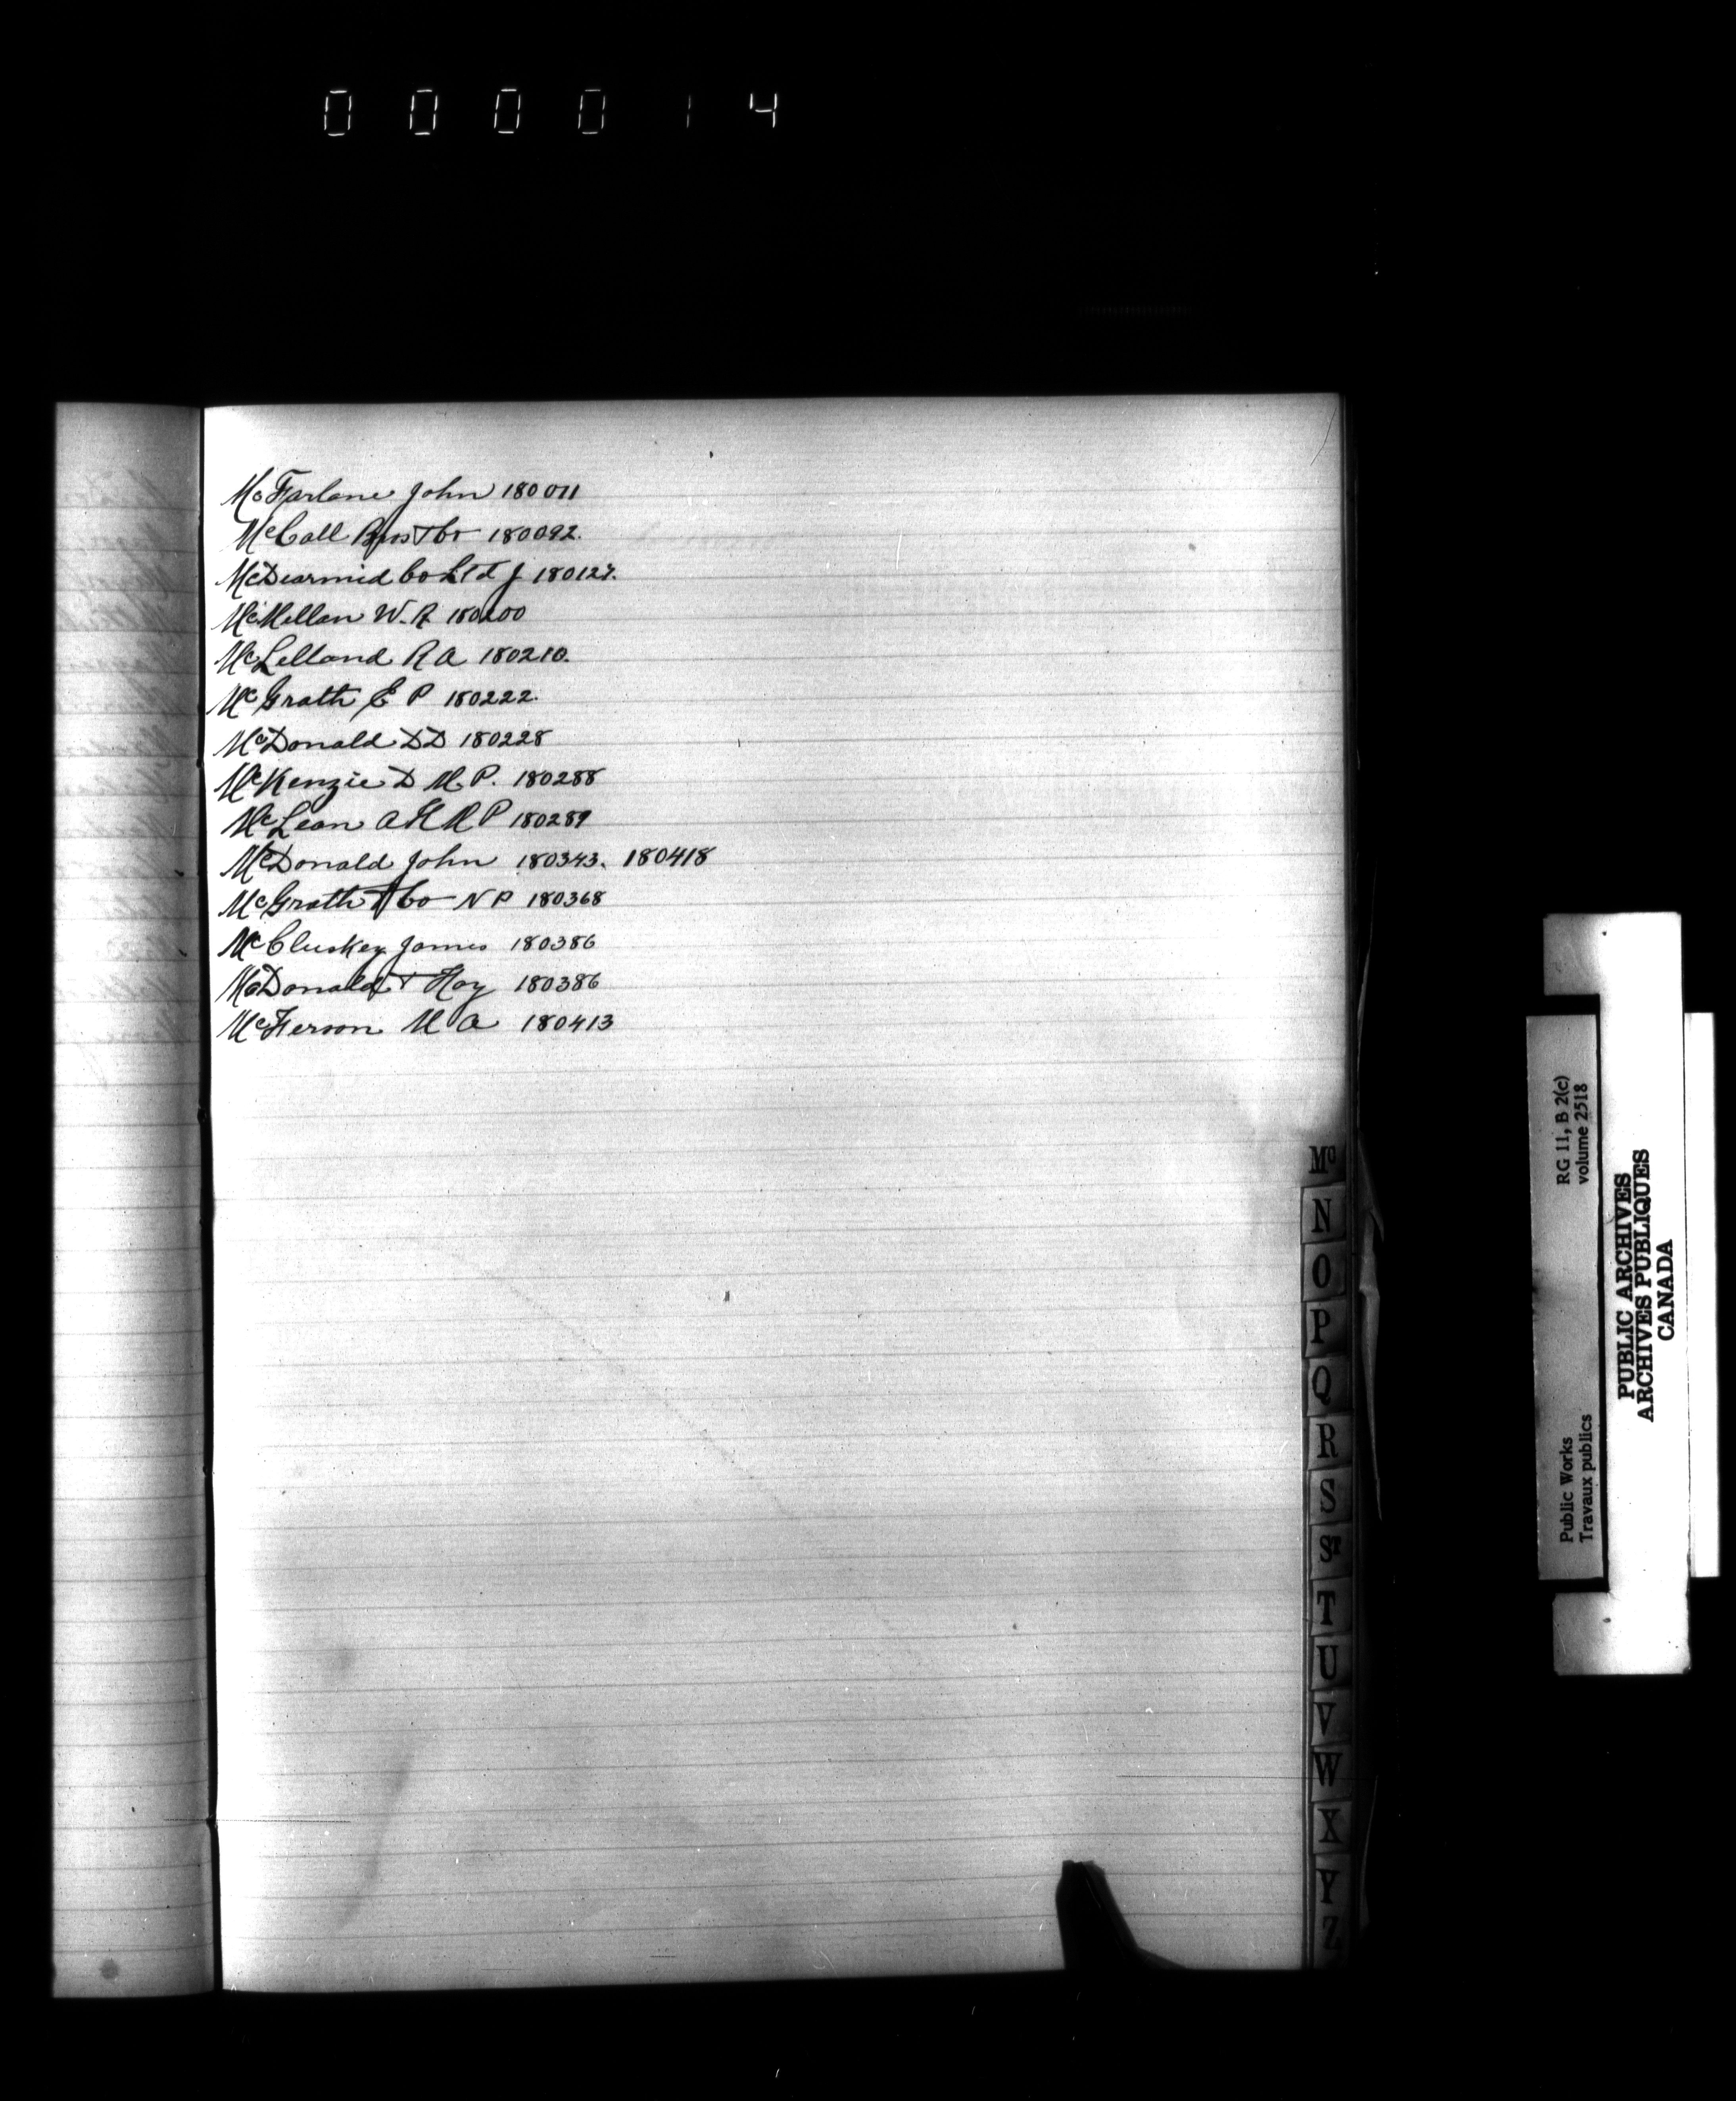 000014
McFarlane John 180011
McCall Bros & Co 180092.
McDearmid Co Ltd J 180127.
McMillan W. R 180200
McLelland R A 180210.
McGrath E P 180222.
McDonald DD 180228
McKenzie D M.P. 180288
McLean A K M P 180289
McDonald John 180343. 180418
McGrath & Co N P 180368
McCluskey James 180386
McDonald & Hay 180386
McFerson M A 180413
Mc
N
O
P
Q
R
S
ST
T
U
V
W
X
Y
Z
Public Works RG 11, B 2(c)
Travaux publics volume 2518
PUBLIC ARCHIVES
ARCHIVES PUBLIQUES
CANADA